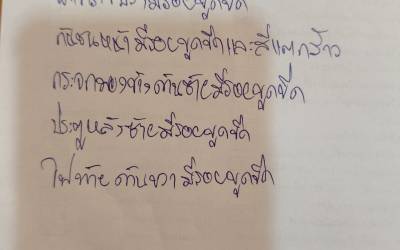 มีรอยขูดขีด
กันชนหน้ามีรอยขูดขีดและสีแตกร้าว
กระจกมองข้างด้านซ้ายมีรอยขูดขีด
ประตูหลังซ้ายมีรอยขูดขีด
ไฟท้ายด้านขวามีรอยขูดขีด